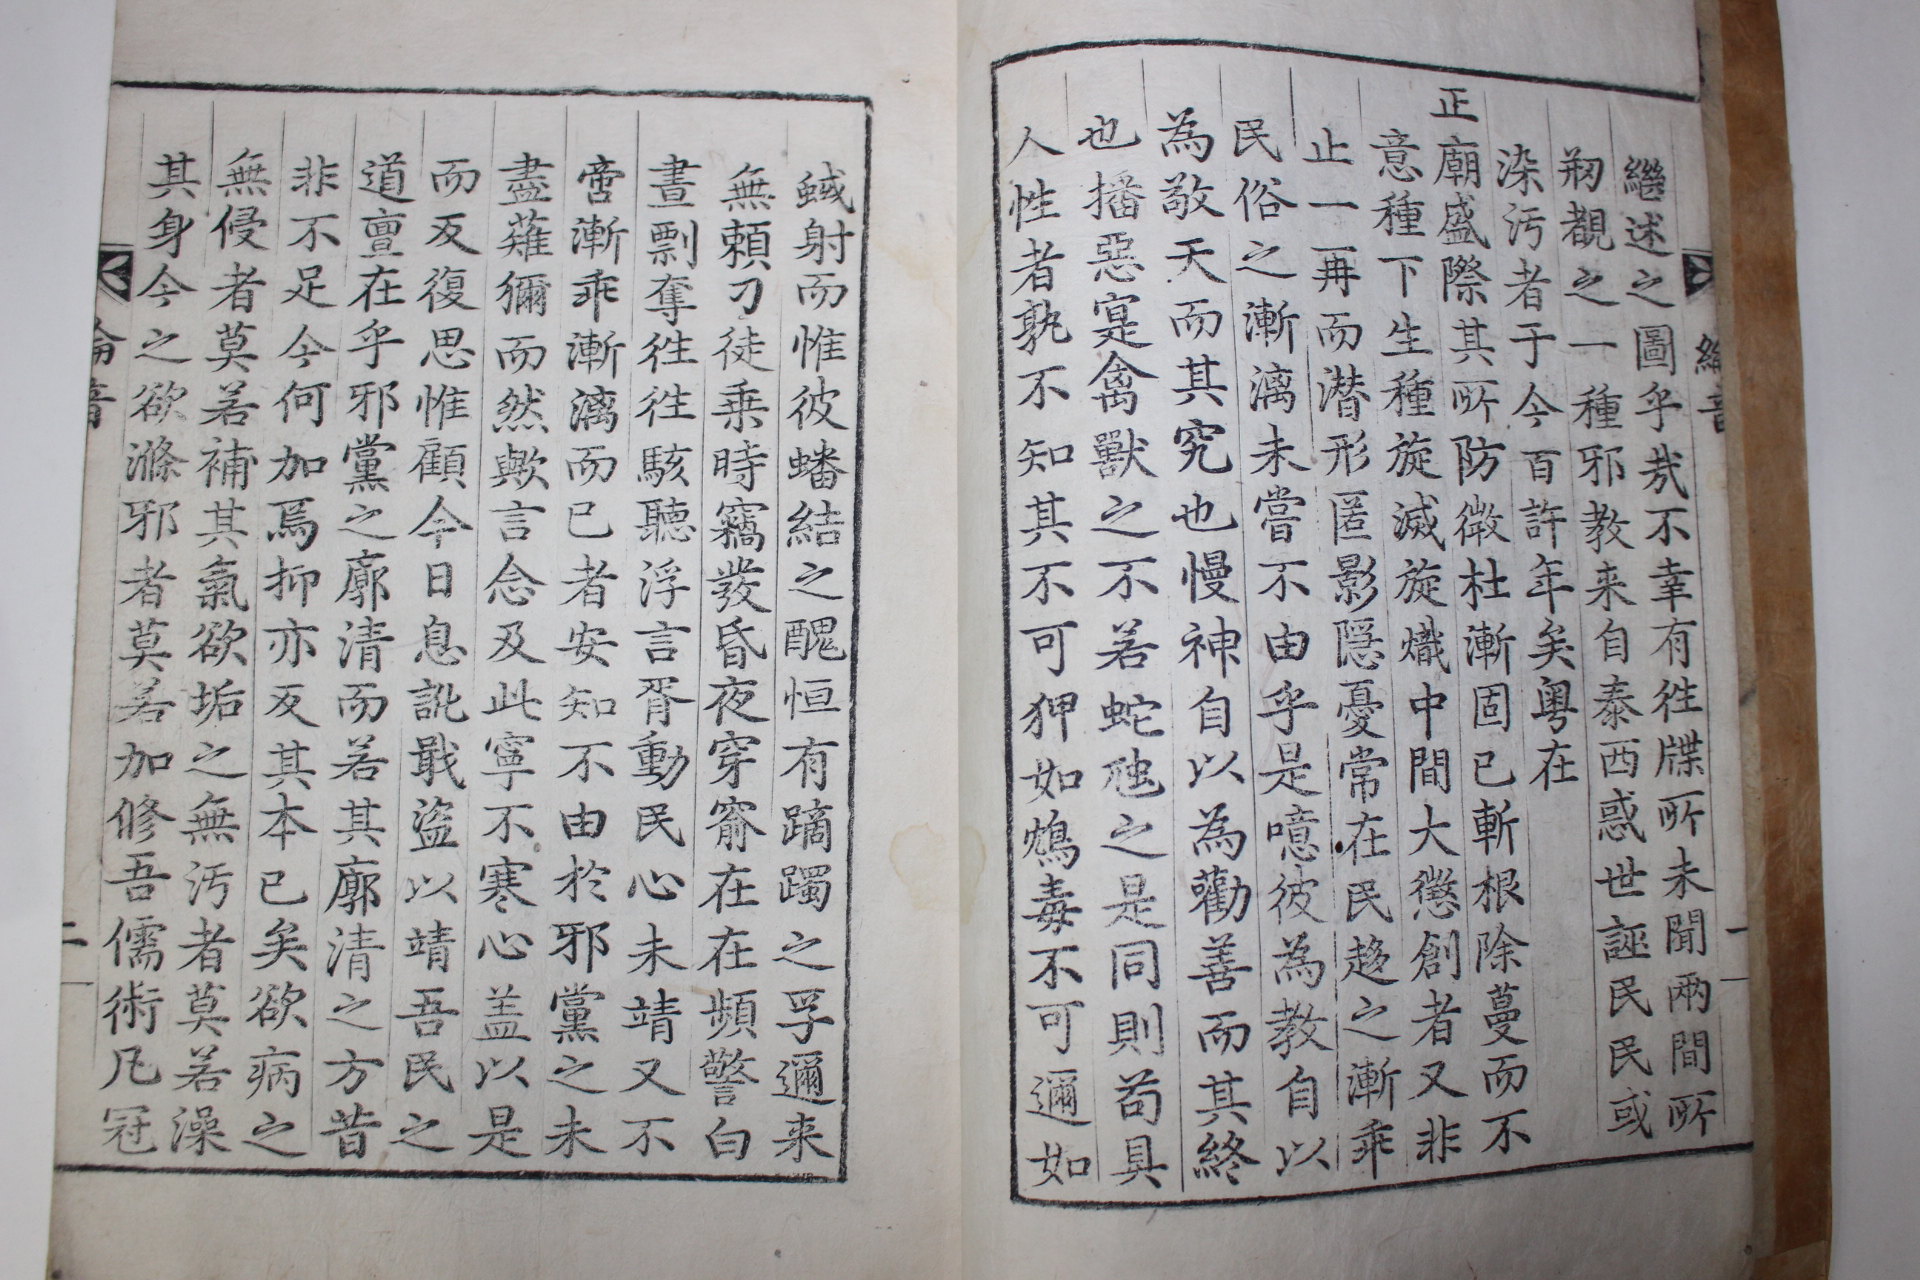 繼述之圖乎㦲不幸有徃牒所未聞兩間所
刱覩之一種邪教来自泰西惑世誣民民或
染汚者于今百許年矣粤在
正廟盛際其所防微杜漸固已斬根除蔓而不
意種下生種旋滅旋熾中間大懲創者又非
止一再而潜形匿影隱憂常在民趍之漸乖
民俗之漸漓未嘗不由乎是噫彼為教自以
為敬天而其究也慢神自以為勸善而其終
也播惡寔禽獸之不若蛇虺之是同則苟具
人性者孰不知其不可狎如鴆毒不可邇如
蜮射而惟彼蟠結之醜恒有蹢躅之孚邇来
無頼刁徒乗時竊發昏夜穿窬在在頻警白
晝剽奪徃徃駭聽浮言胥動民心未靖又不
啻漸乖漸漓而已者安知不由於邪黨之未
盡薙獮而然歟言念及此寧不寒心盖以是
而反復思惟顧今日息訛戢盗以靖吾民之
道亶在乎邪黨之廓清而若其廓清之方昔
非不足今何加焉抑亦反其本已矣欲病之
無侵者莫若補其氣欲垢之無汚者莫若澡
其身今之欲滌邪者莫若加修吾儒術凡冠
綸音
一
綸音
二